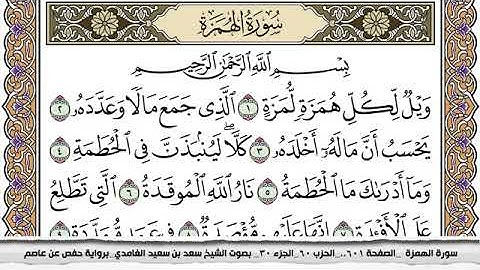 سُورَةُ الْهُمَزَةِ
بِسْمِ اللَّهِ الرَّحْمَٰنِ الرَّحِيمِ
وَيْلٌ لِّكُلِّ هُمَزَةٍ لُّمَزَةٍ ١ الَّذِي جَمَعَ مَالًا وَعَدَّدَهُۥ ٢
يَحْسَبُ أَنَّ مَالَهُۥٓ أَخْلَدَهُۥ ٣ كَلَّاۖ لَيُنۢبَذَنَّ فِي الْحُطَمَةِ ٤
وَمَآ أَدْرَىٰكَ مَا الْحُطَمَةُ ٥ نَارُ اللَّهِ الْمُوقَدَةُ ٦ الَّتِي تَطَّلِعُ
عَلَى الْأَفْـِٔدَةِ ٧ إِنَّهَا عَلَيْهِم مُّؤْصَدَةٌ ٨ فِي عَمَدٍ مُّمَدَّدَةٍۭ ٩
سورة الهمزة _الصفحة ٦٠١...الحزب ٦٠_الجزء ٣٠_ بصوت الشيخ سعد بن سعيد الغامدي _برواية حفص عن عاصم